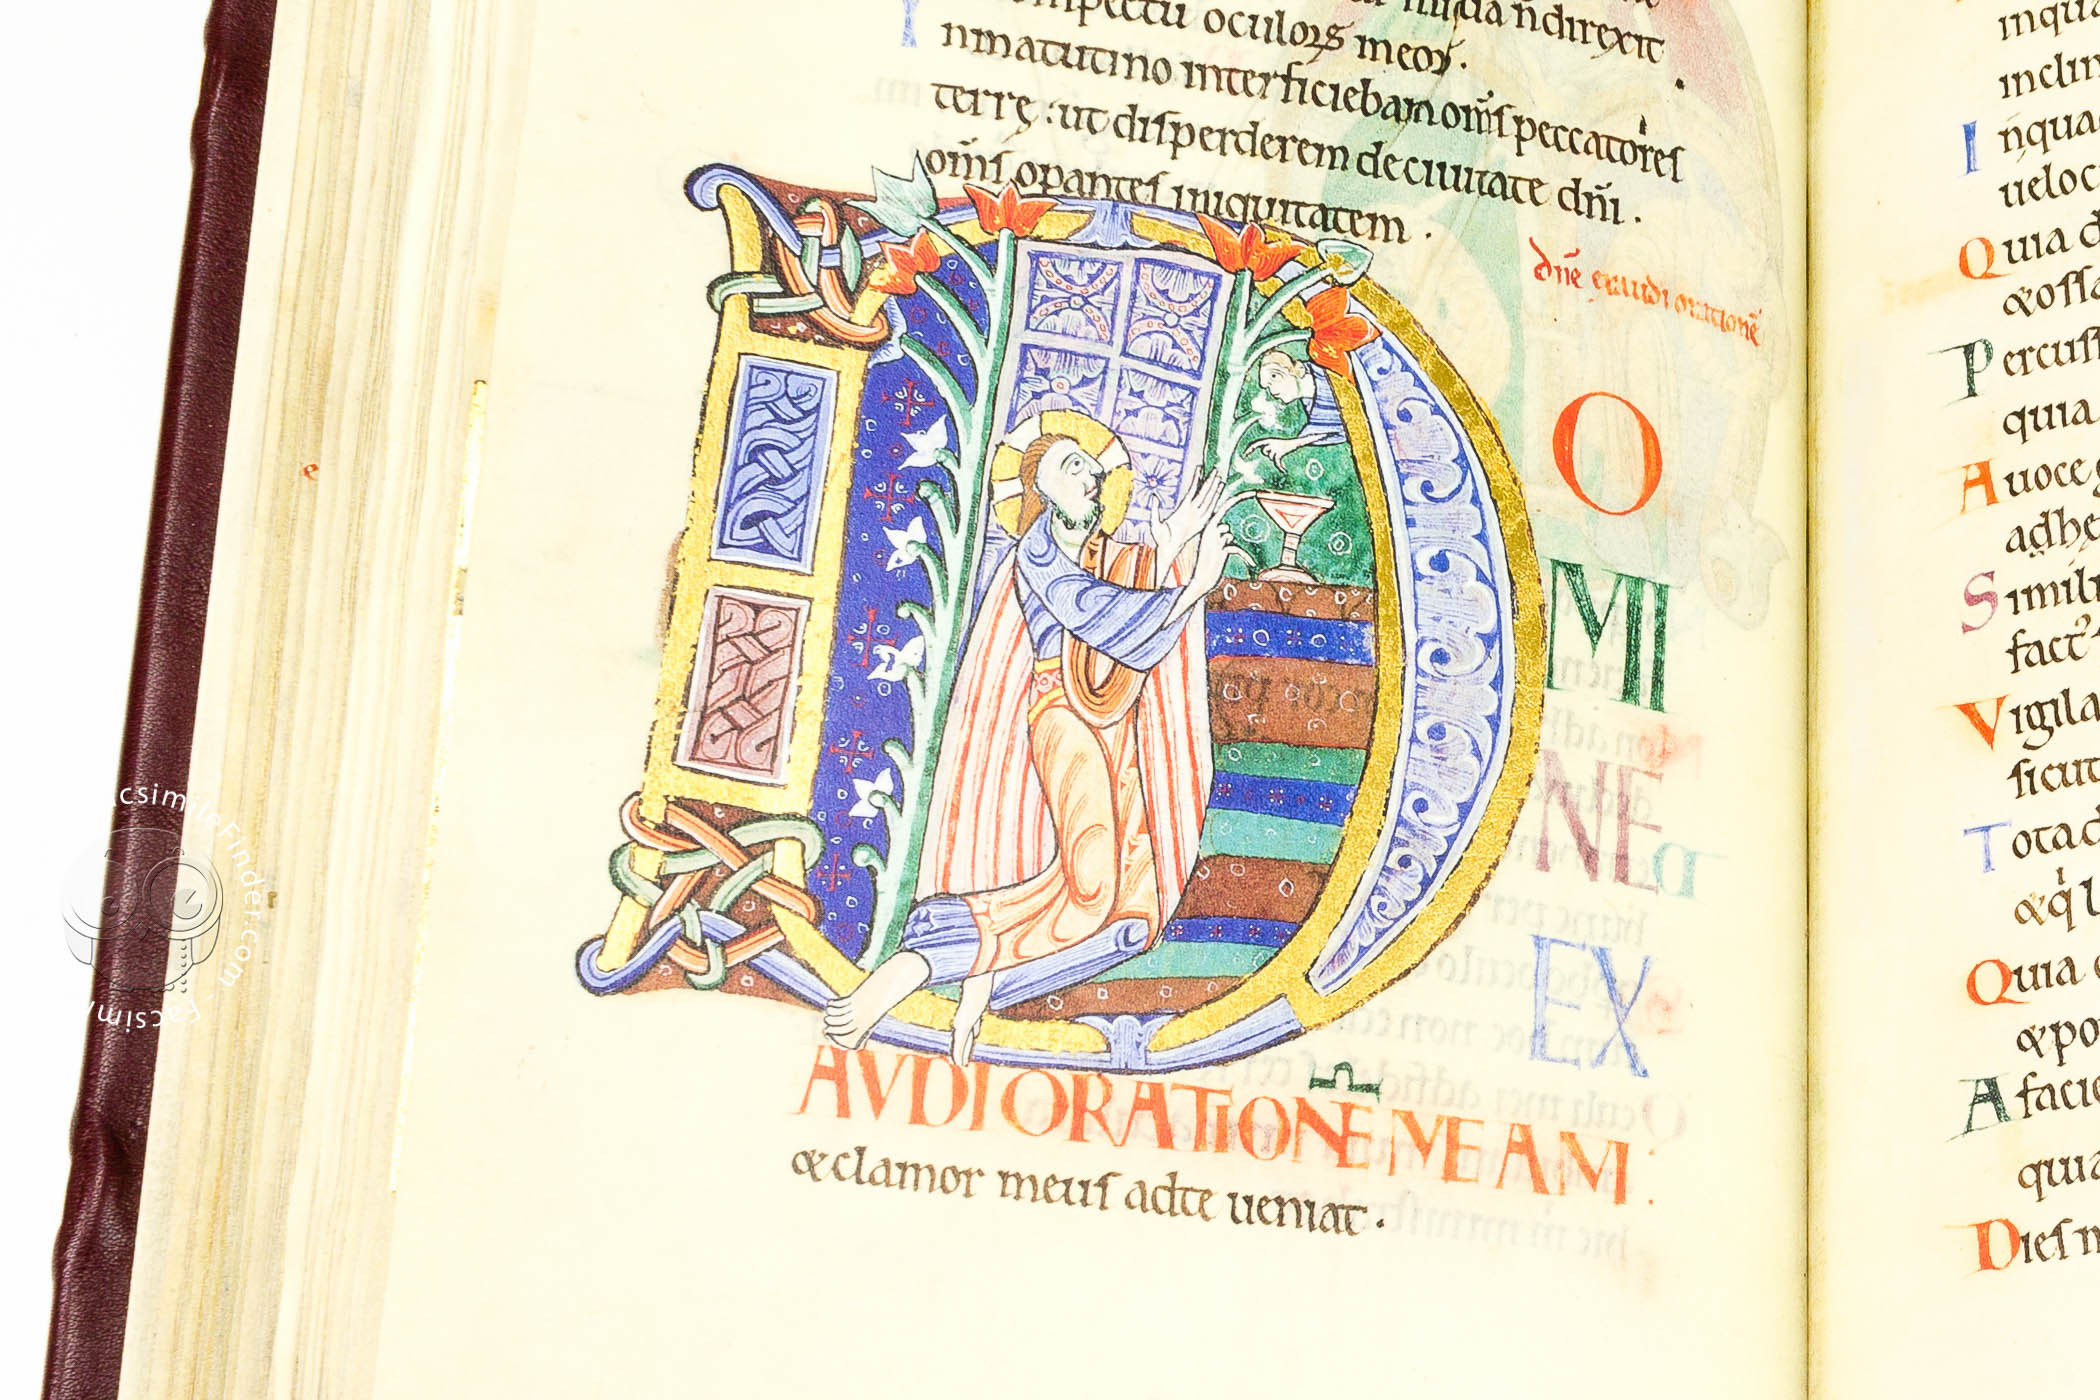 oculoꝝ meoꝝ.
In matutino interficiebam om̄s peccatores
terrę: ut disperderem de ciuitate dn̄i.
om̄s operantes iniquitatem.
dn̄e exaudi orationē
DO
MI
NE
EX
AVDI ORATIONE MEAM:
& clamor meus ad te ueniat.
Quia
& ossa
Percuss
quia
A uoce
adhę
Simili
fact
Vigila
sicut
Tota d
Quia
A facie
quia
Dies m
FacsimileFinder.com